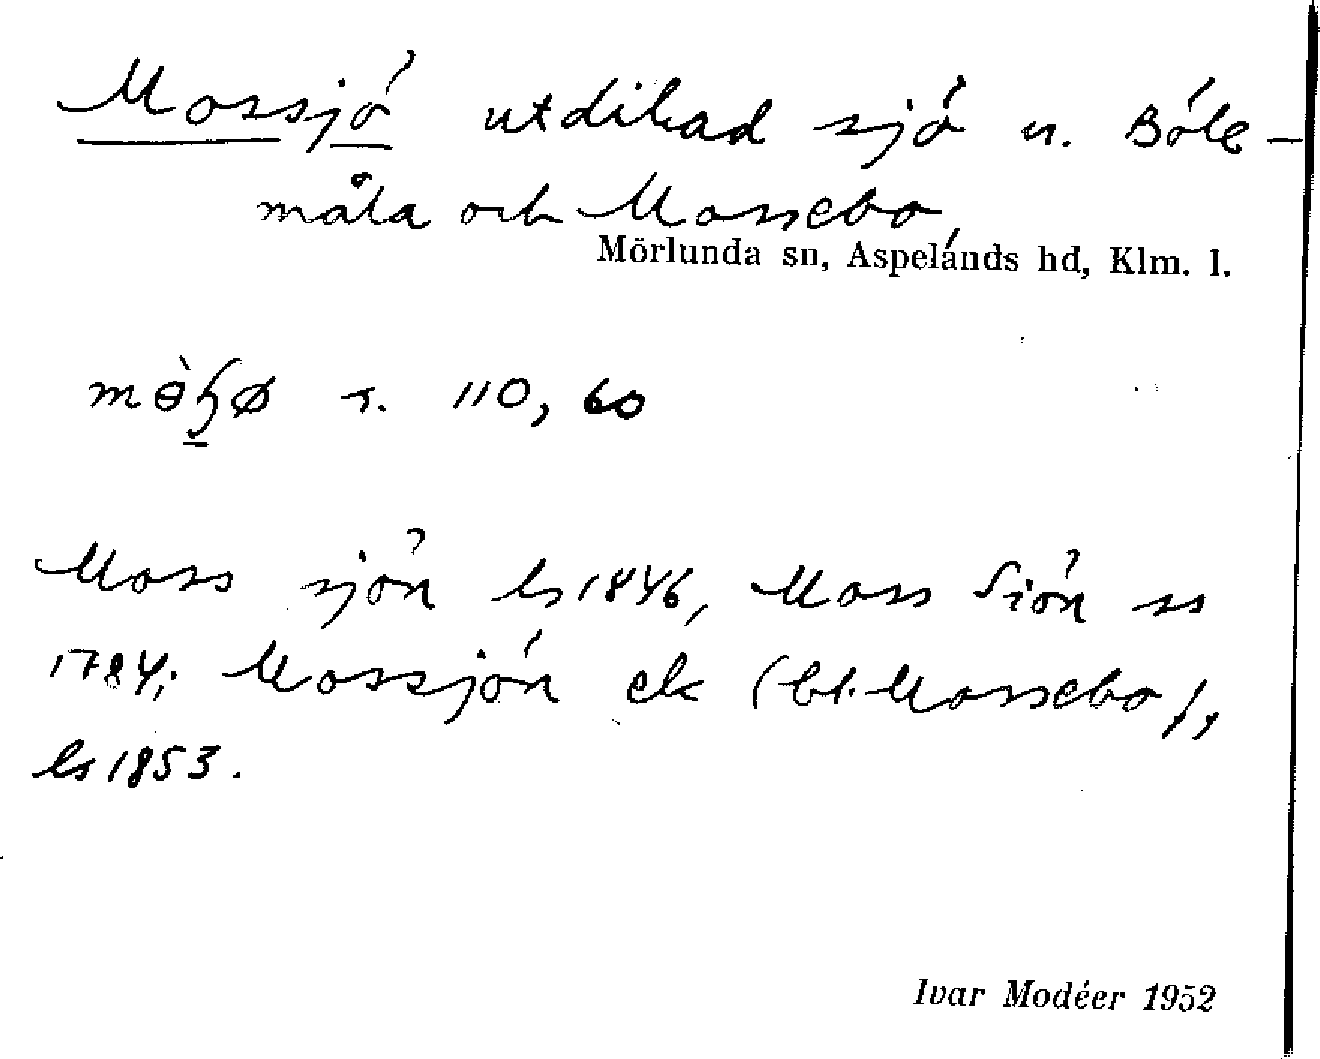 Mossjö utdikad sjö n. Böle-
måla och Mossebo,
Mörlunda sn, Aspelands hd, Klm. l.
110, 60
Moss sjön ls 1846, Moss Siön ss
1784; Mossjön ek (bl. Mossebo),
ls 1853.
Ivar Modéer 1952